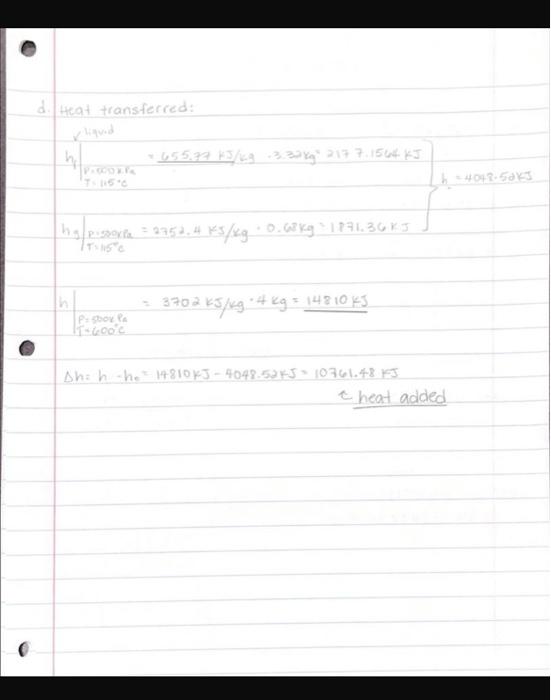 d. Heat transferred:
liquid
hf | P=500kPa T=115°C = 655.77 KJ/kg · 3.32kg = 2177.1564 KJ
h = 4048.52KJ
hg | P=500kPa T=115°C = 2752.4 KJ/kg · 0.68kg = 1871.36KJ
h | P=500kPa T=600°C = 3702 KJ/kg · 4 kg = 14810 KJ
Δh = h - h₀ = 14810KJ - 4048.52KJ = 10761.48 KJ
heat added